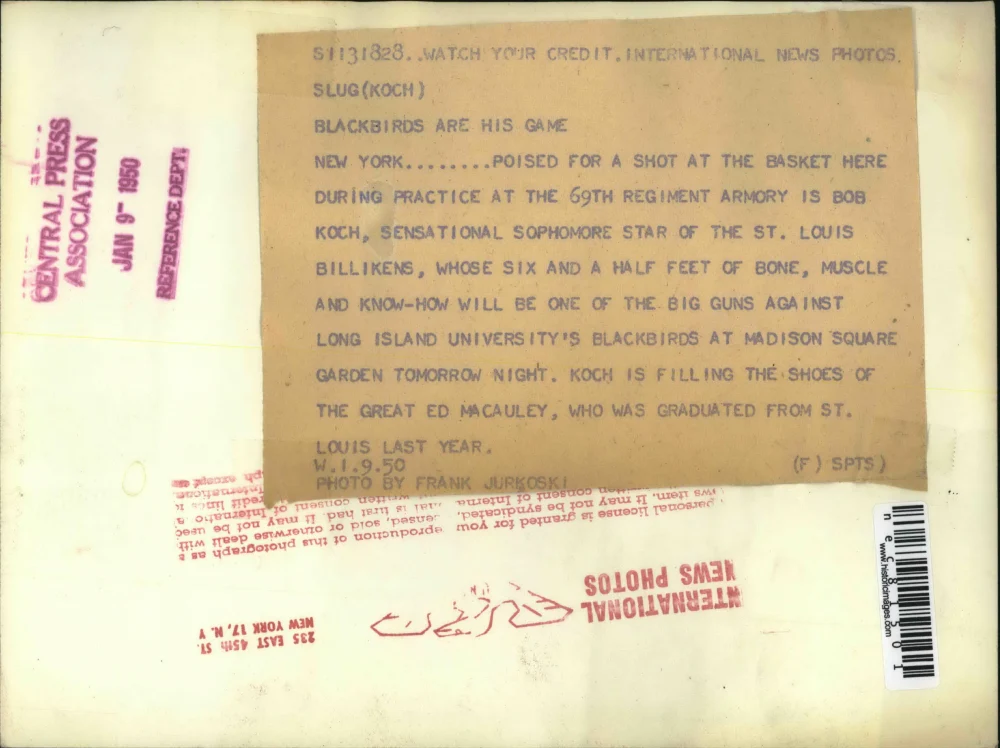 S1131828..WATCH YOUR CREDIT.INTERNATIONAL NEWS PHOTOS.
SLUG(KOCH)
BLACKBIRDS ARE HIS GAME
NEW YORK........POISED FOR A SHOT AT THE BASKET HERE
DURING PRACTICE AT THE 69TH REGIMENT ARMORY IS BOB
KOCH, SENSATIONAL SOPHOMORE STAR OF THE ST. LOUIS
BILLIKENS, WHOSE SIX AND A HALF FEET OF BONE, MUSCLE
AND KNOW-HOW WILL BE ONE OF THE BIG GUNS AGAINST
LONG ISLAND UNIVERSITY'S BLACKBIRDS AT MADISON SQUARE
GARDEN TOMORROW NIGHT. KOCH IS FILLING THE SHOES OF
THE GREAT ED MACAULEY, WHO WAS GRADUATED FROM ST.
LOUIS LAST YEAR.
W.1.9.50 (F) SPTS)
PHOTO BY FRANK JURKOSKI
CENTRAL PRESS
ASSOCIATION
JAN 9- 1950
REFERENCE DEPT.
INTERNATIONAL
NEWS PHOTOS
235 EAST 45th ST.
NEW YORK 17, N. Y
personal license is granted for you
reproduction of this photograph as a
censed, sold or otherwise dealt with
ws item. It may not be syndicated,
is first had. It may not be used
written consent of Interna
written consent of Internatio
credit line
Internation
ph except
nec81501
www.historicimages.com